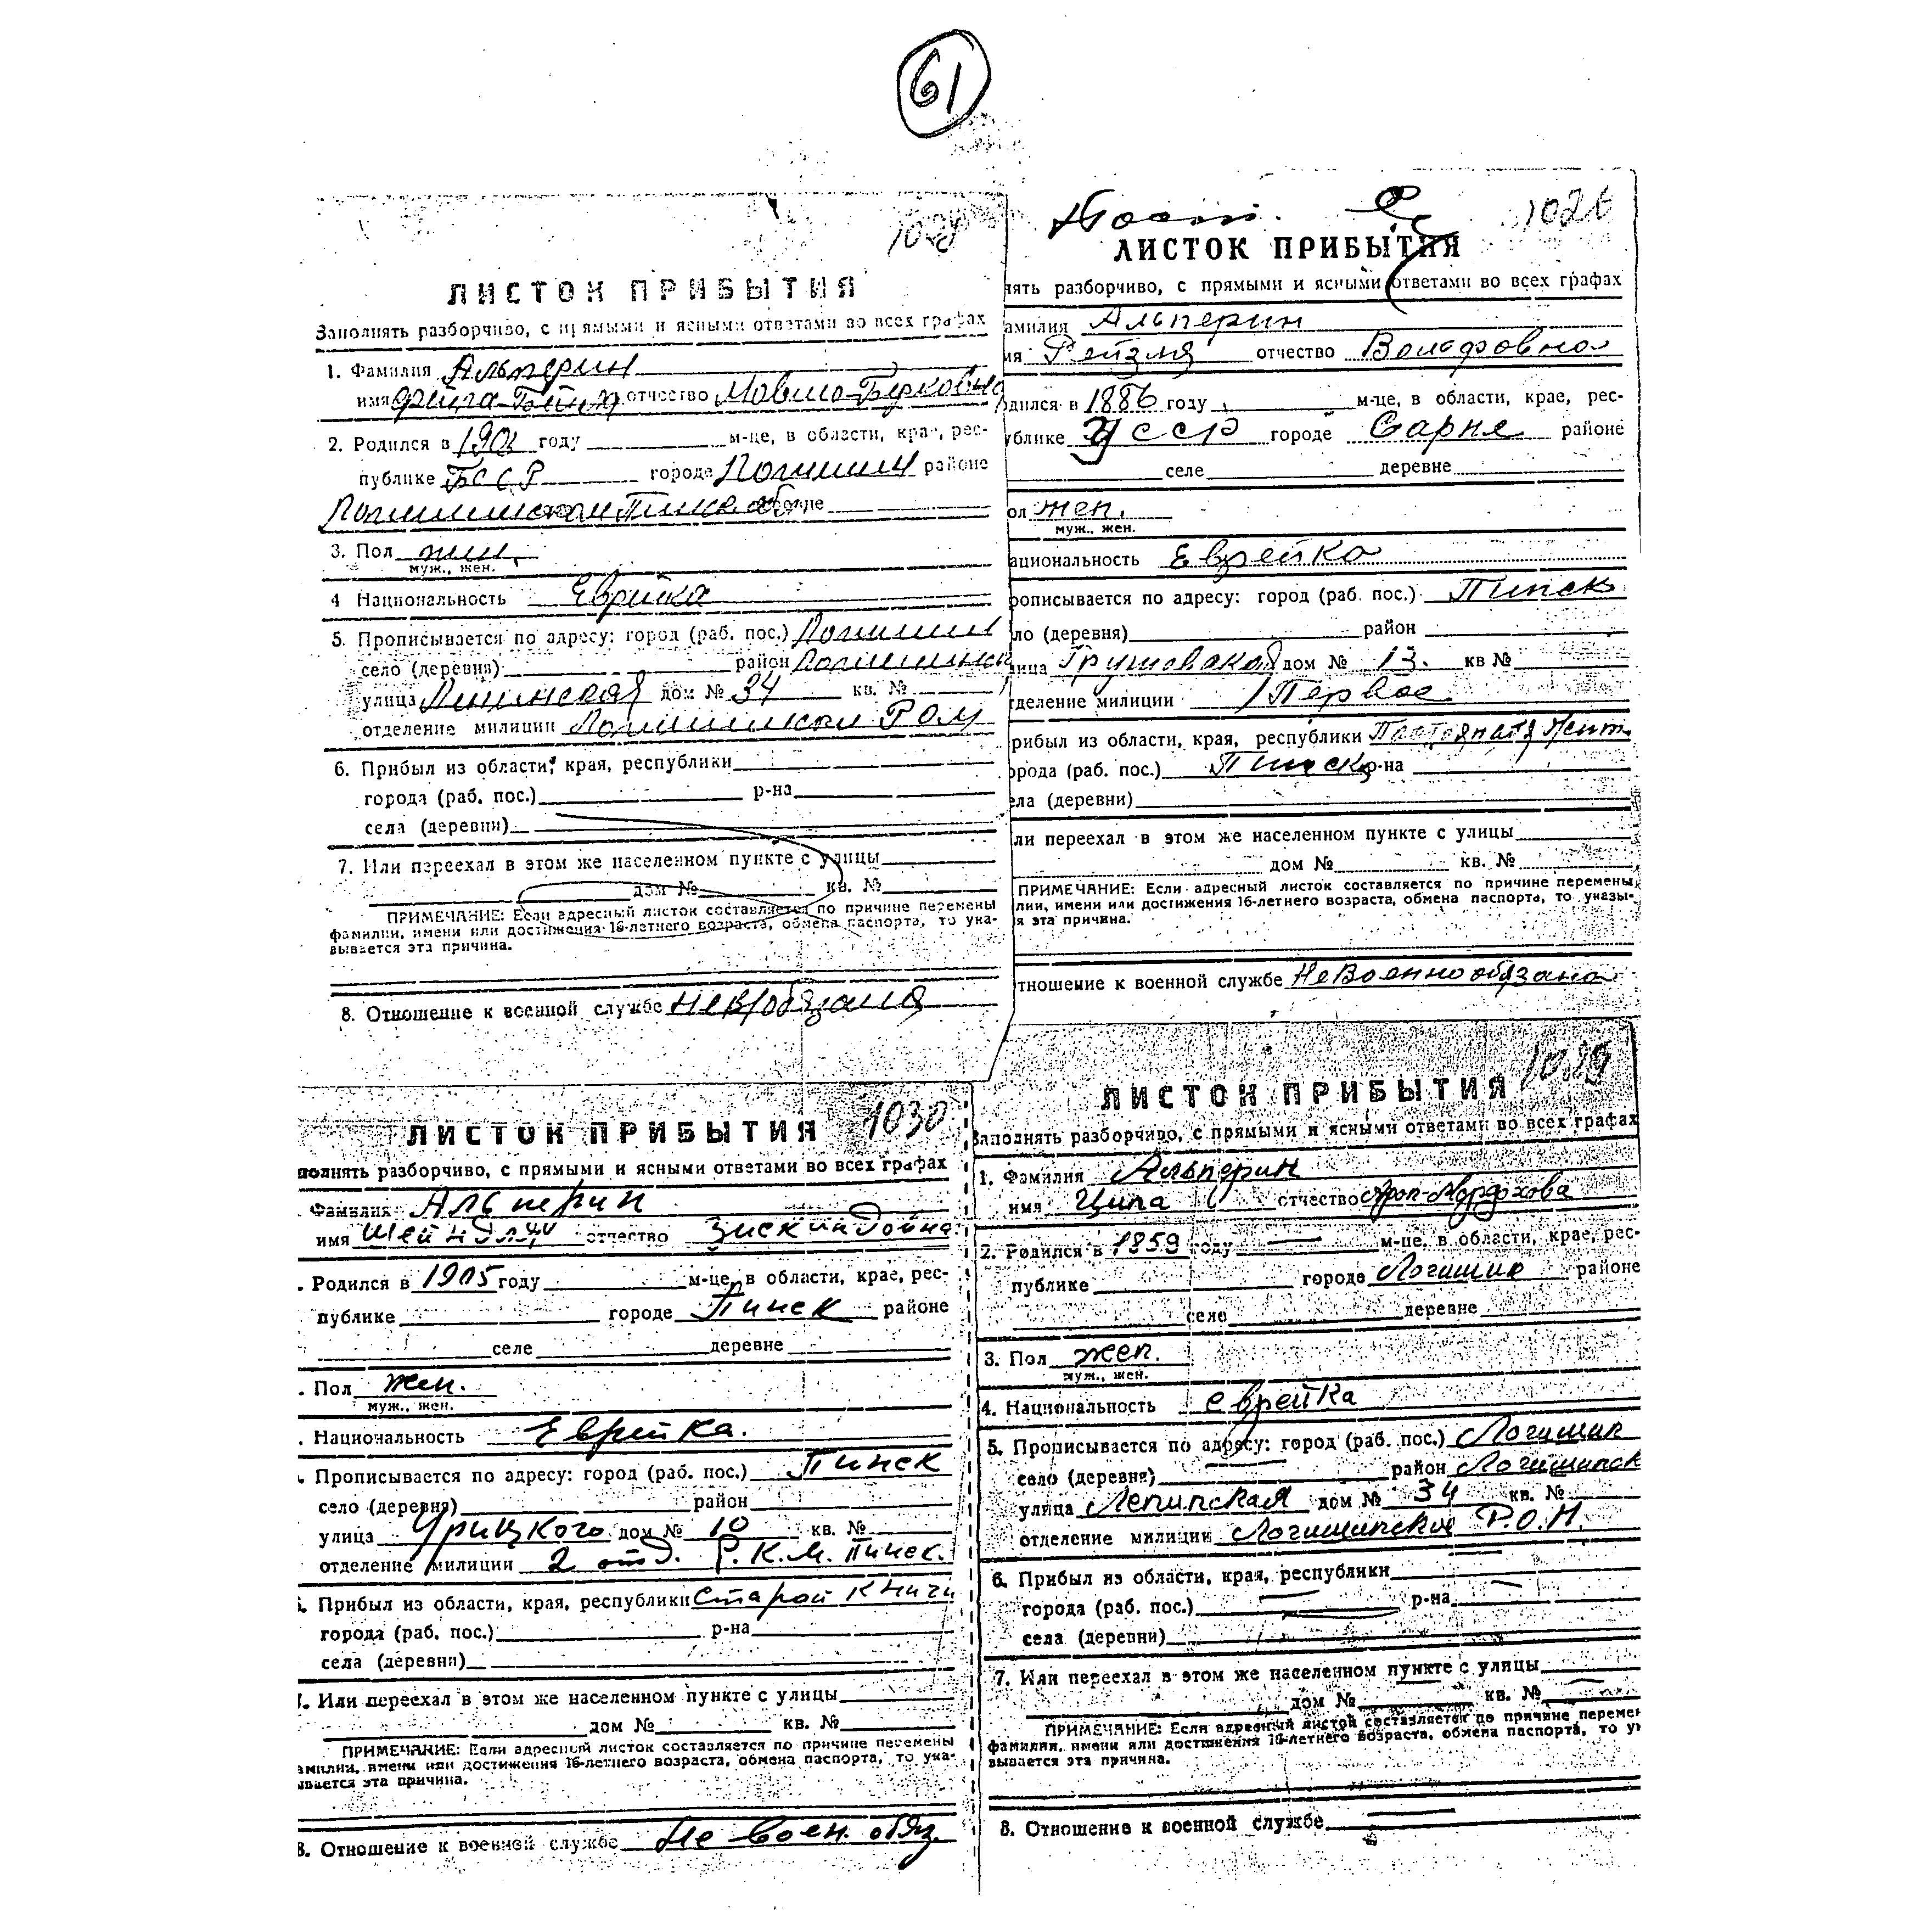 61
1028
ЛИСТОК ПРИБЫТИЯ
Заполнять разборчиво, с прямыми и ясными ответами во всех графах
1. Фамилия Альперин
имя Фейга-Бейля отчество Мовша-Берковна
2. Родился в году м-це, в области, крае, рес-
публике БССР городе Логишин районе
3. Пол жен.
муж., жен.
4 Национальность Еврейка
5. Прописывается по адресу: город (раб. пос.) Логишин
село (деревня) район Логишинск
улица Ленинская дом № 34 кв. №
отделение милиции Логишинское РОМ
6. Прибыл из области, края, республики
города (раб. пос.) р-на
села (деревни)
7. Или переехал в этом же населенном пункте с улицы
дом № кв. №
ПРИМЕЧАНИЕ: Если адресный листок составляется по причине перемены
фамилии, имени или достижения 16-летнего возраста, обмена паспорта, то ука-
вывается эта причина.
8. Отношение к военной службе Нев/обязана
1026
ЛИСТОК ПРИБЫТИЯ
нять разборчиво, с прямыми и ясными ответами во всех графах
амилия Альперин
мя Рейзля отчество Вольфовна
одился в 1886 году м-це, в области, крае, рес-
ублике УССР городе Сарне районе
селе деревне
ол жен.
муж., жен.
ациональность Еврейка
рописывается по адресу: город (раб. пос.) Пинск
ло (деревня) район
лица Грушовская дом № 13. кв №
тделение милиции Первое
рибыл из области, края, республики Постоянная жит.
орода (раб. пос.) Пинск р-на
ела (деревни)
ли переехал в этом же населенном пункте с улицы
дом № кв. №
ПРИМЕЧАНИЕ: Если адресный листок составляется по причине перемены
лии, имени или достижения 16-летнего возраста, обмена паспорта, то указы-
я эта причина.
тношение к военной службе Невоеннообязана
1030
ЛИСТОК ПРИБЫТИЯ
полнять разборчиво, с прямыми и ясными ответами во всех графах
Фамилия Альперин
имя Шейндля отчество Зискиндовна
. Родился в 1905 году м-це, в области, крае, рес-
публике городе Пинск районе
селе деревне
. Пол жен.
муж., жен.
. Национальность Еврейка.
. Прописывается по адресу: город (раб. пос.) Пинск
село (деревня) район
улица Урицкого дом № 10 кв. №
отделение милиции 2 отд. Р.К.М. Пинск.
. Прибыл из области, края, республики Старой книги
города (раб. пос.) р-на
села (деревни)
. Или переехал в этом же населенном пункте с улицы
дом № кв. №
ПРИМЕЧАНИЕ: Если адресный листок составляется по причине перемены
амилии, имени или достижения 16-летнего возраста, обмена паспорта, то ука-
ывается эта причина.
8. Отношение к военной службе Не воен. обяз.
ЛИСТОК ПРИБЫТИЯ
Заполнять разборчиво, с прямыми и ясными ответами во всех графах
1. Фамилия Альперин
имя Ципа отчество Арон-Мордхова
2. Родился в 1859 году м-це, в области, крае, рес-
публике городе Логишин районе
селе деревне
3. Пол жен.
муж., жен.
4. Национальность еврейка
5. Прописывается по адресу: город (раб. пос.) Логишин
село (деревня) район Логишинск
улица Ленинская дом № 34 кв. №
отделение милиции Логишинское Р.О.М.
6. Прибыл из области, края, республики
города (раб. пос.) р-на
села (деревни)
7. Или переехал в этом же населенном пункте с улицы
дом № кв. №
ПРИМЕЧАНИЕ: Если адресный листок составляется по причине перемен
фамилии, имени или достижения 16-летнего возраста, обмена паспорта, то у
вывается эта причина.
8. Отношение к военной службе